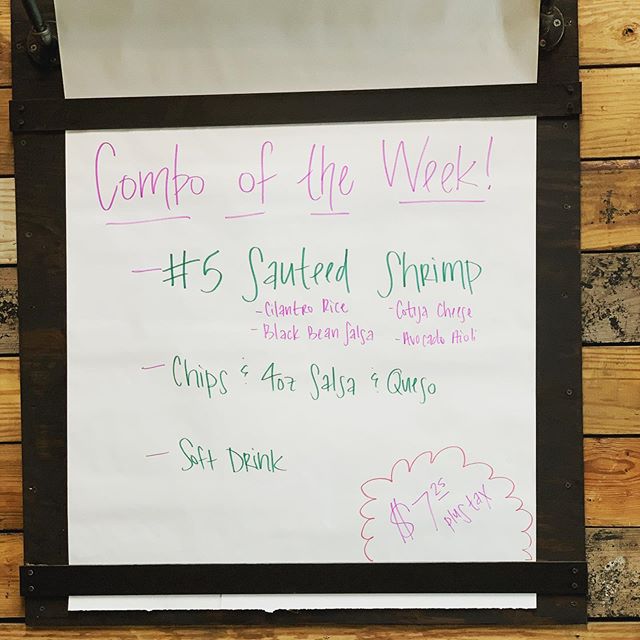 Combo of the Week!
- #5 Sauteed Shrimp
- Cilantro Rice - Cotija Cheese
- Black Bean Salsa - Avocado Aioli
- Chips & 4oz Salsa & Queso
- Soft Drink
$7.25 plus tax